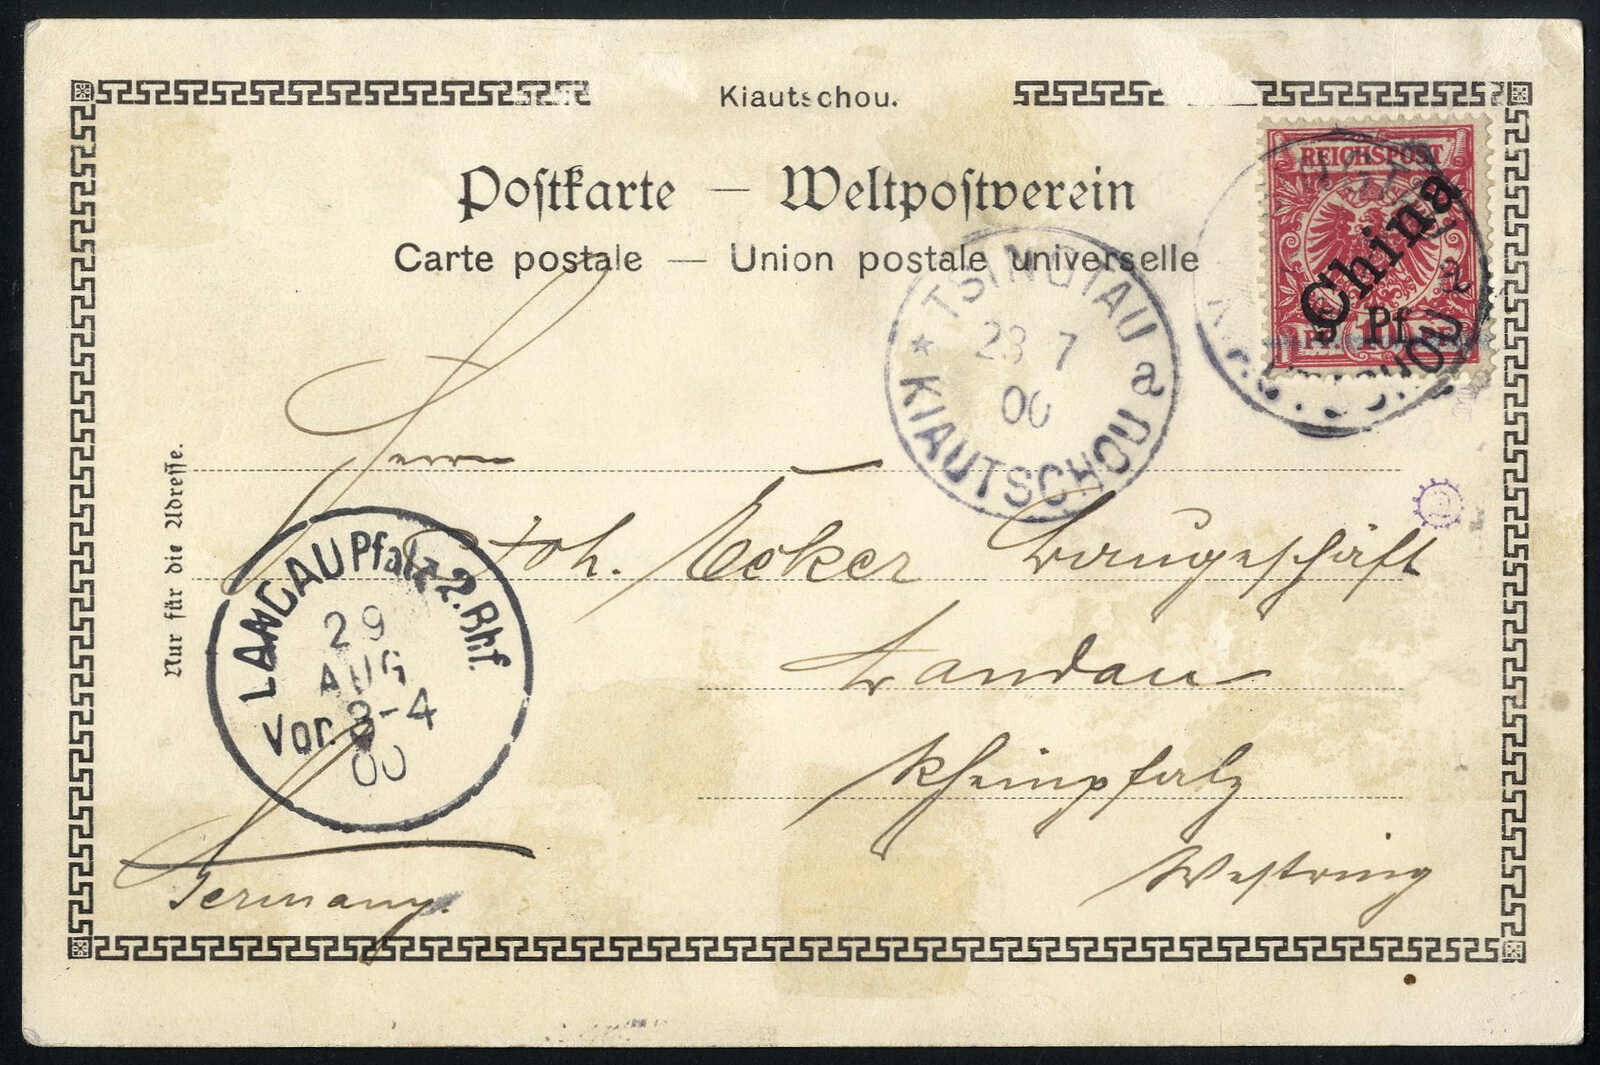 Kiautschou.
Postkarte — Weltpostverein
Carte postale — Union postale universelle
REICHSPOST
China
5 Pf.
PF. 10 PF.
KIAUTSCHOU
* TSINGTAU a
23 7
00
KIAUTSCHOU
Nur für die Adresse.
Herrn
Joh. Ecker Baugeschäft
Landau
Rheinpfalz
Westring
Germany.
LANDAU Pfalz 2. Bhf.
29
AUG
Vor. 3-4
00